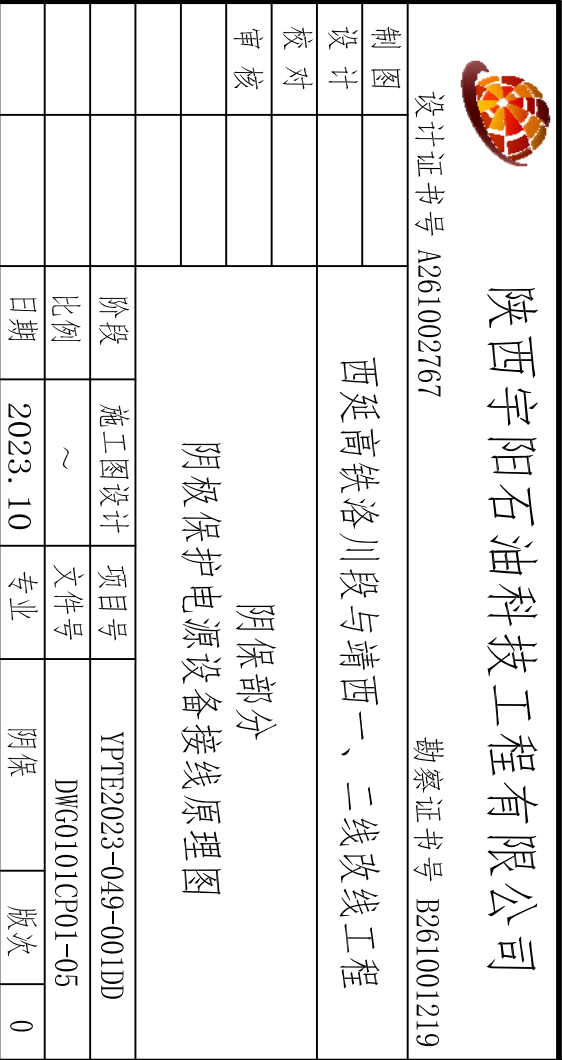 陕西宇阳石油科技工程有限公司
设计证书号 A261002767 勘察证书号 B261001219
制图
设计
校对
审核
西延高铁洛川段与靖西一、二线改线工程
阴保部分
阴极保护电源设备接线原理图
阶段 施工图设计 项目号 YPTE2023-049-001DD
比例 ~ 文件号 DWG0101CP01-05
日期 2023.10 专业 阴保 版次 0